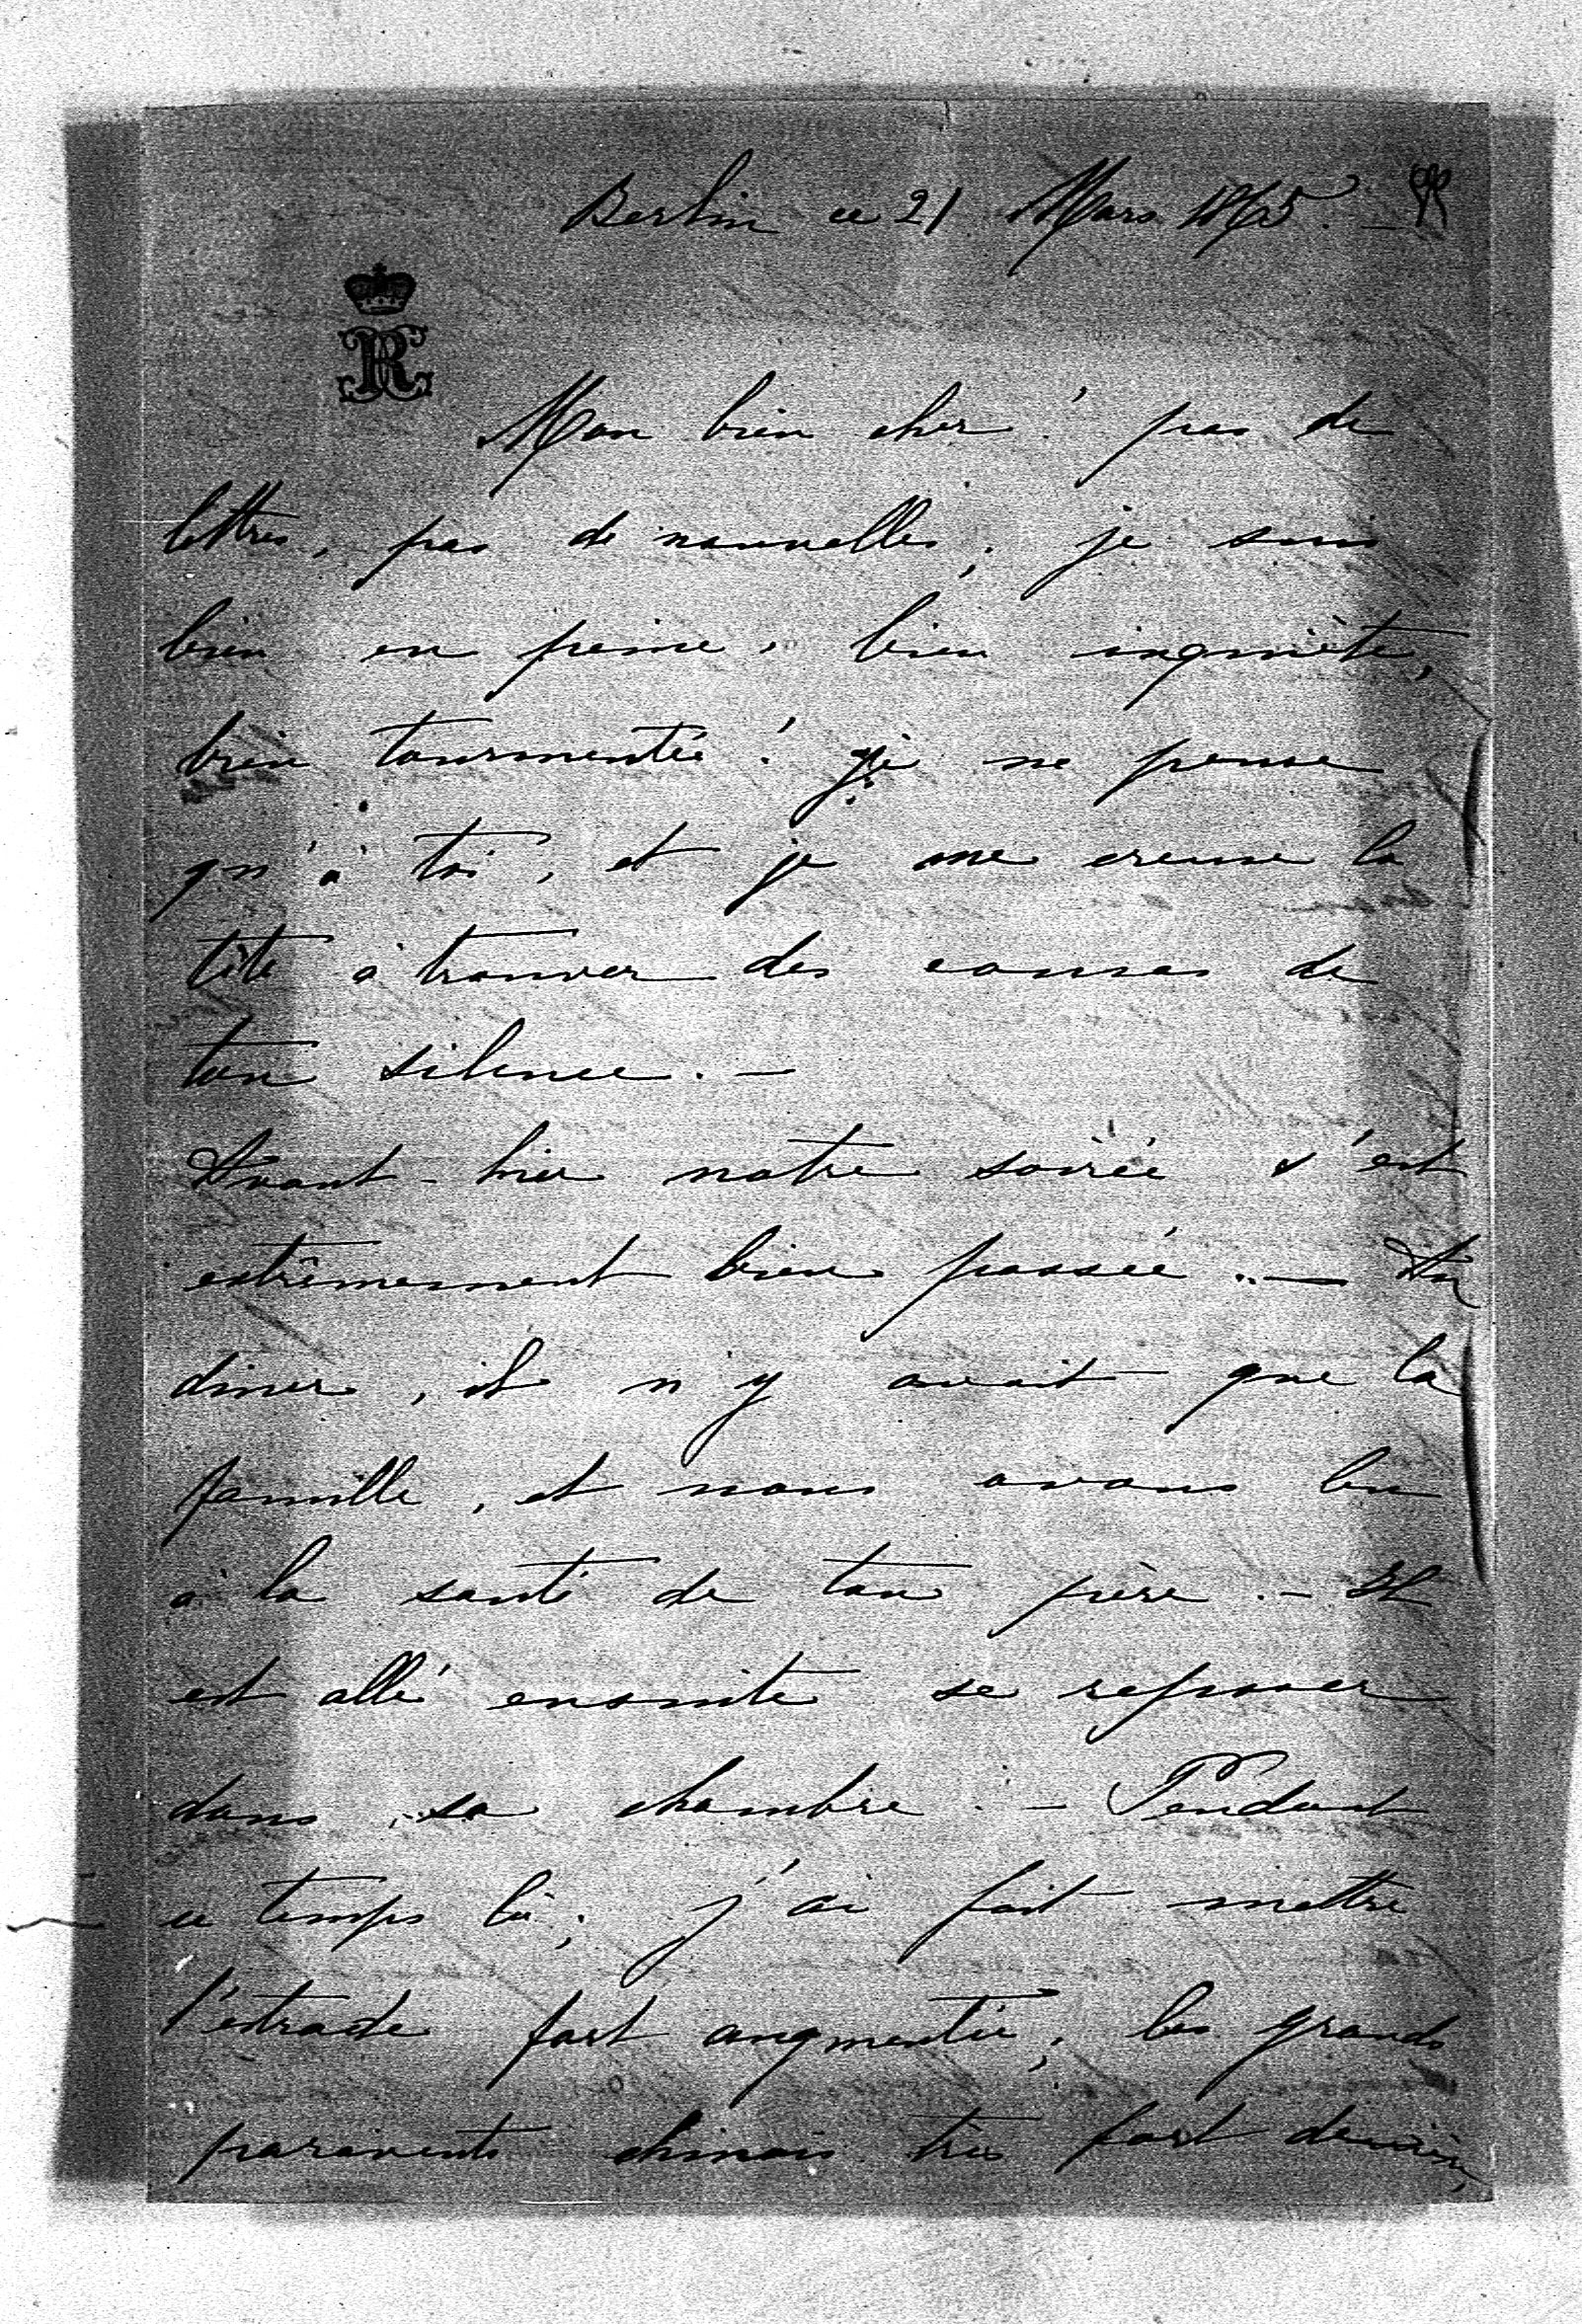 Berlin ce 21 Mars 1865. –
Mon bien cher! pas de
lettres, pas de nouvelles, je suis
bien en peine, bien inquiète,
bien tourmentée! je ne pense
qu'à toi, et je me creuse la
tête à trouver des causes de
ton silence. –
Avant-hier notre soirée s'est
extrêmement bien passée. – Au
diner, il n'y avait que la
famille, et nous avons bu
à la santé de ton père. – Il
est allé ensuite se reposer
dans sa chambre. – Pendant
ce temps là, j'ai fait mettre
l'estrade fort augmentée, les grands
paravents chinois très fort derrière,